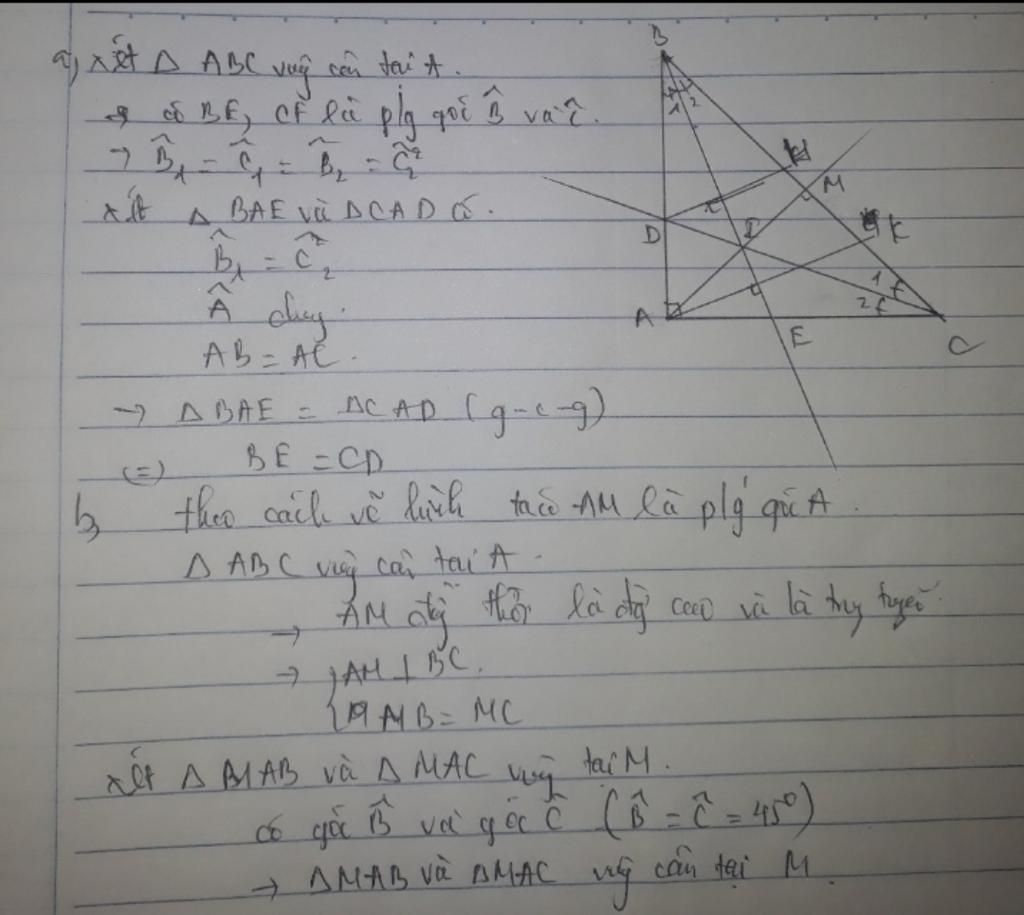 a, xét Δ ABC vug cân tại A.
→ có BE, CF là p/g góc B̂ và Ĉ.
→ B̂₁ = Ĉ₁ = B̂₂ = Ĉ₂
xét Δ BAE và ΔCAD có.
B̂₁ = Ĉ₂
Â chug.
AB = AC.
→ Δ BAE = ΔCAD (g-c-g)
(=) BE = CD
b, theo cách vẽ hình ta có AM là p/g góc A.
Δ ABC vug cân tại A.
→ AM đg thời là đg cao và là trg tuyến.
→ AM ⊥ BC.
MB = MC
xét Δ MAB và Δ MAC vug tại M.
có góc B̂ và góc Ĉ (B̂ = Ĉ = 45⁰)
→ ΔMAB và ΔMAC vug cân tại M.
B
1 2
H
M
D
I
K
1
2
A
E
C